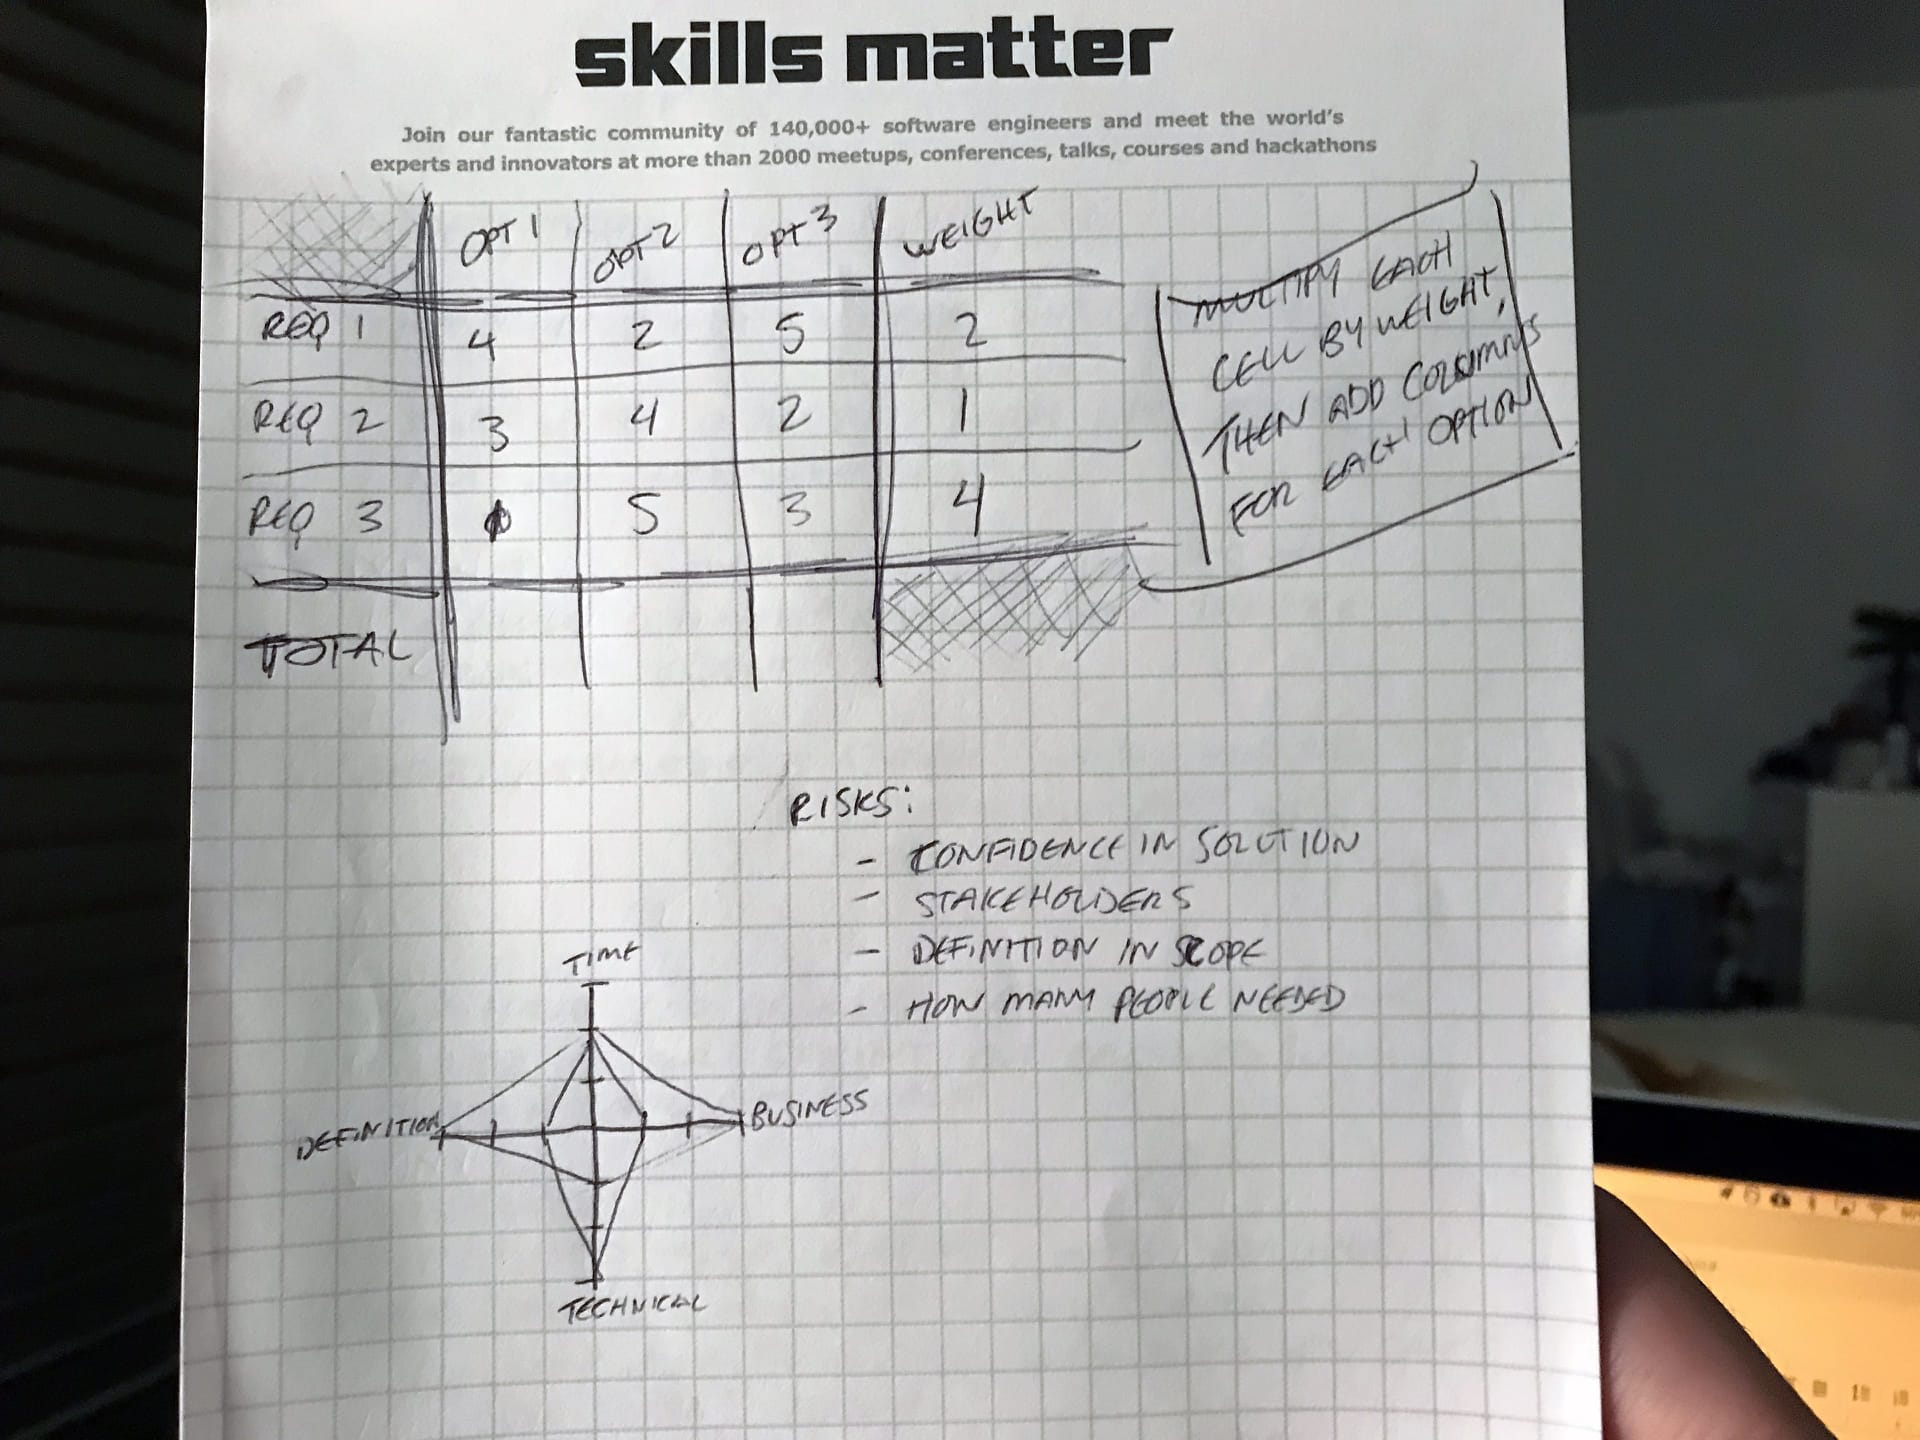 skills matter
Join our fantastic community of 140,000+ software engineers and meet the world's
experts and innovators at more than 2000 meetups, conferences, talks, courses and hackathons
OPT 1 OPT 2 OPT 3 WEIGHT
REQ 1 4 2 5 2
REQ 2 3 4 2 1
REQ 3 5 3 4
TOTAL
MULTIPY EACH
CELL BY WEIGHT,
THEN ADD COLUMNS
FOR EACH OPTION
RISKS:
- CONFIDENCE IN SOLUTION
- STAKEHOLDERS
- DEFINITION IN SCOPE
- HOW MANY PEOPLE NEEDED
TIME
DEFINITION
BUSINESS
TECHNICAL